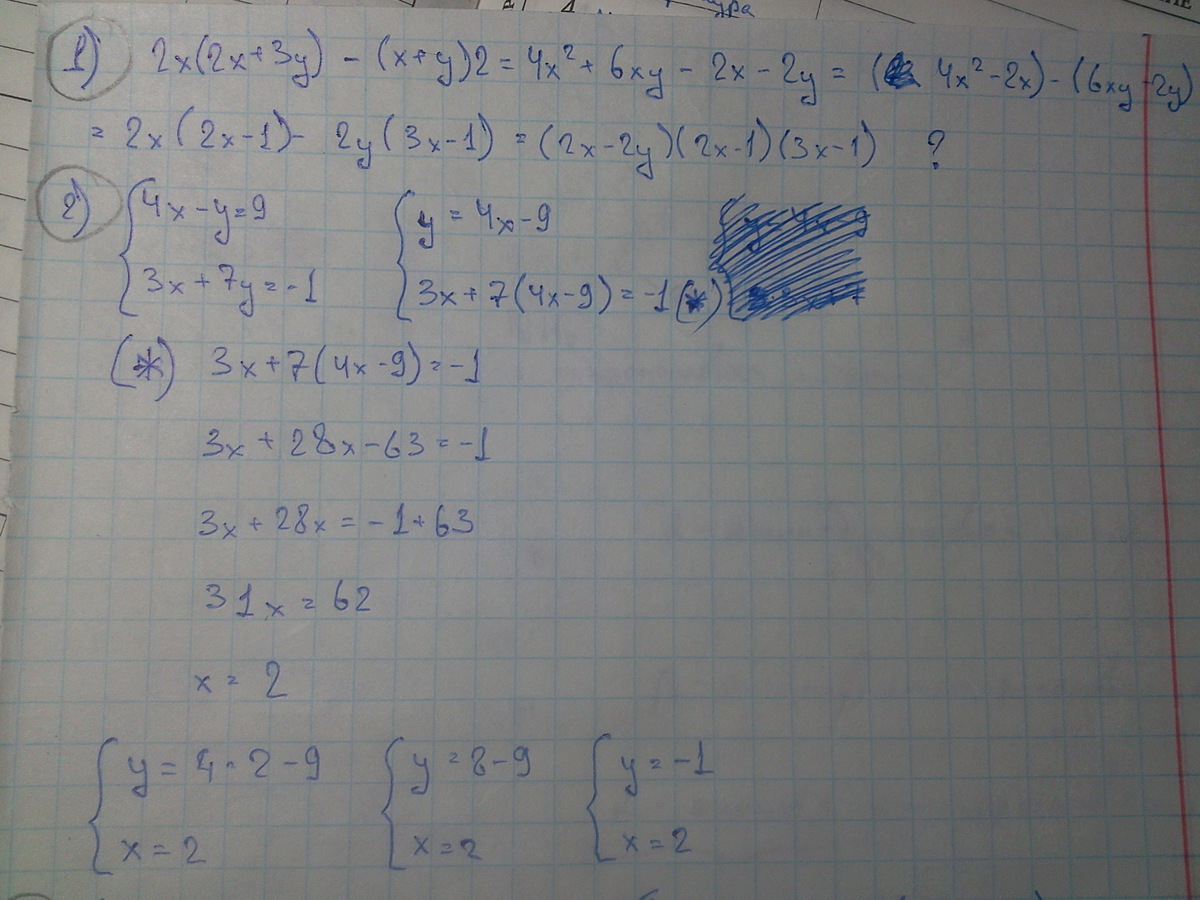 1) 2x(2x+3y) - (x+y)2 = 4x²+6xy - 2x - 2y = (4x²-2x)-(6xy-2y)
= 2x(2x-1)- 2y(3x-1) = (2x-2y)(2x-1)(3x-1) ?
2) {4x-y=9 {y=4x-9
3x+7y=-1 3x+7(4x-9)=-1(*)
(*) 3x+7(4x-9)=-1
3x+28x-63=-1
3x+28x=-1+63
31x=62
x=2
{y=4·2-9 {y=8-9 {y=-1
x=2 x=2 x=2